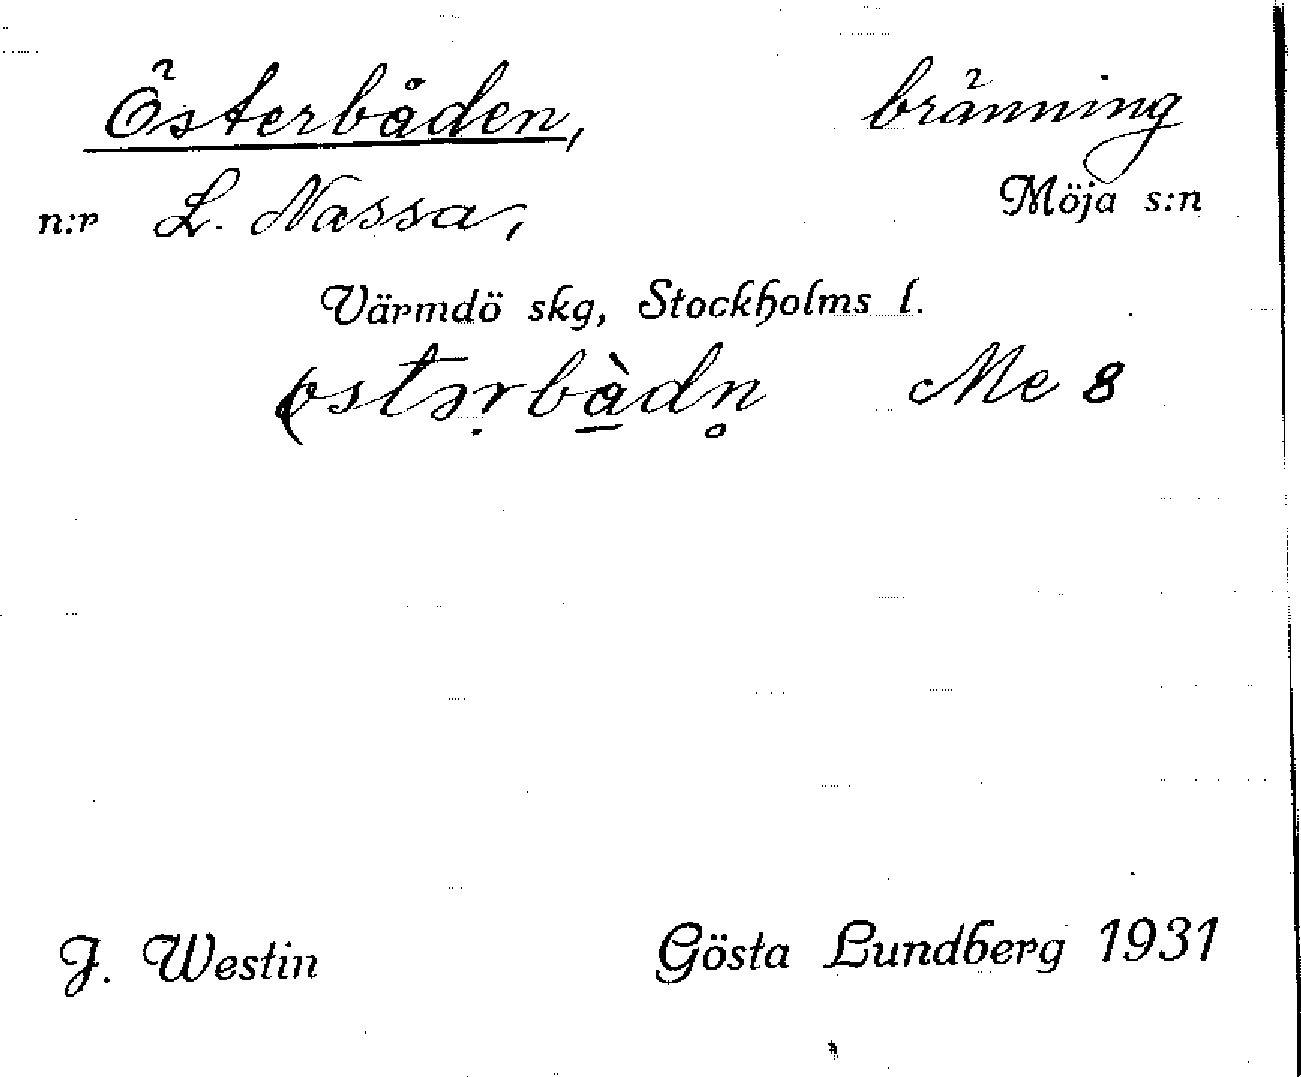 Österbåden, bränning
n:r L. Nassa, Möja s:n
Värmdö skg, Stockholms l.
Me 8
J. Westin Gösta Lundberg 1931